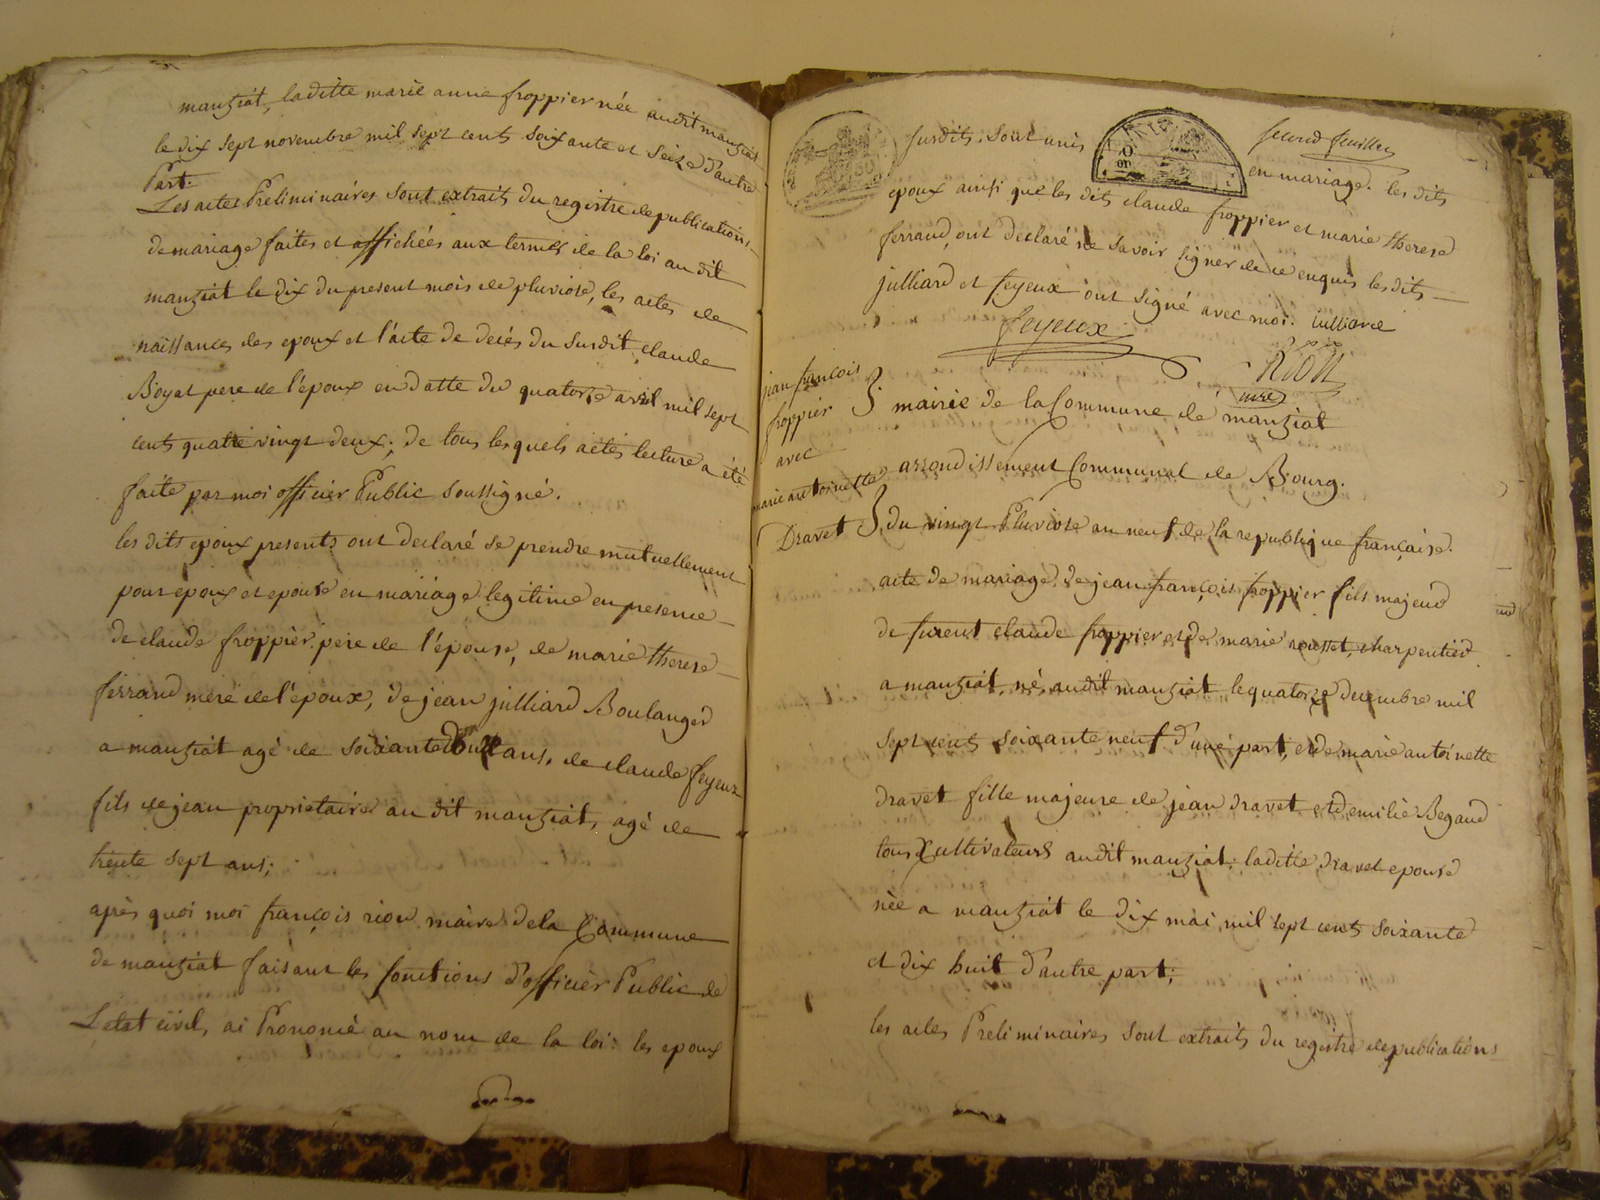 manziat, laditte marie anne froppier née audit manziat
le dix sept novembre mil sept cents soixante et seize d'autre
Part.
Les actes Preliminaires sont extraits du registre de publications
de mariage faites et affichées aux termes de la loi au dit
manziat le dix du present mois de pluviose, les actes de
naissances des epoux et l'acte de decés du susdit claude
Boyat pere de l'époux en datte du quatorze avril mil sept
cents quatre vingt deux; de tous lesquels actes lecture a été
faite par moi officier Public soussigné.
les dits epoux presents ont declaré se prendre mutuellement
pour epoux et epouse en mariage legitime en presence
de claude froppier pere de l'épouse, de marie therese
ferrand mere de l'époux, de jean julliard Boulanger
a manziat agé de soixante ans, de claude feyeux
fils de jean proprietaire au dit manziat, agé de
trente sept ans;
après quoi moi françois riou maire de la Commune
de manziat faisant les fonctions d'officier Public de
L'etat civil, ai Prononcé au nom de la loi: les epoux
susdits sont unis
second feuillet
en mariage. les dits
epoux ainsi que les dits claude froppier et marie therese
ferrand, ont declaré ne savoir signer de ce enquis les dits
julliard et feyeux ont signé avec moi. julliard
feyeux
Riou
mre
jean françois
froppier
avec
marie antoinette
Dravet
mairie de la Commune de manziat
arrondissement Communal de Bourg.
du vingt Pluviose an neuf de la republique française.
acte de mariage de jean françois froppier fils majeur
de furent claude froppier et de marie rousset, charpentier
a manziat, né audit manziat le quatorze decembre mil
sept cents soixante neuf d'une part, et de marie antoinette
dravet fille majeure de jean dravet et d'emilie Begaud
tous Cultivateurs audit manziat, laditte dravet epouse
née a manziat le dix mai mil sept cents soixante
et dix huit d'autre part;
les actes Preliminaires sont extraits du registre de publications